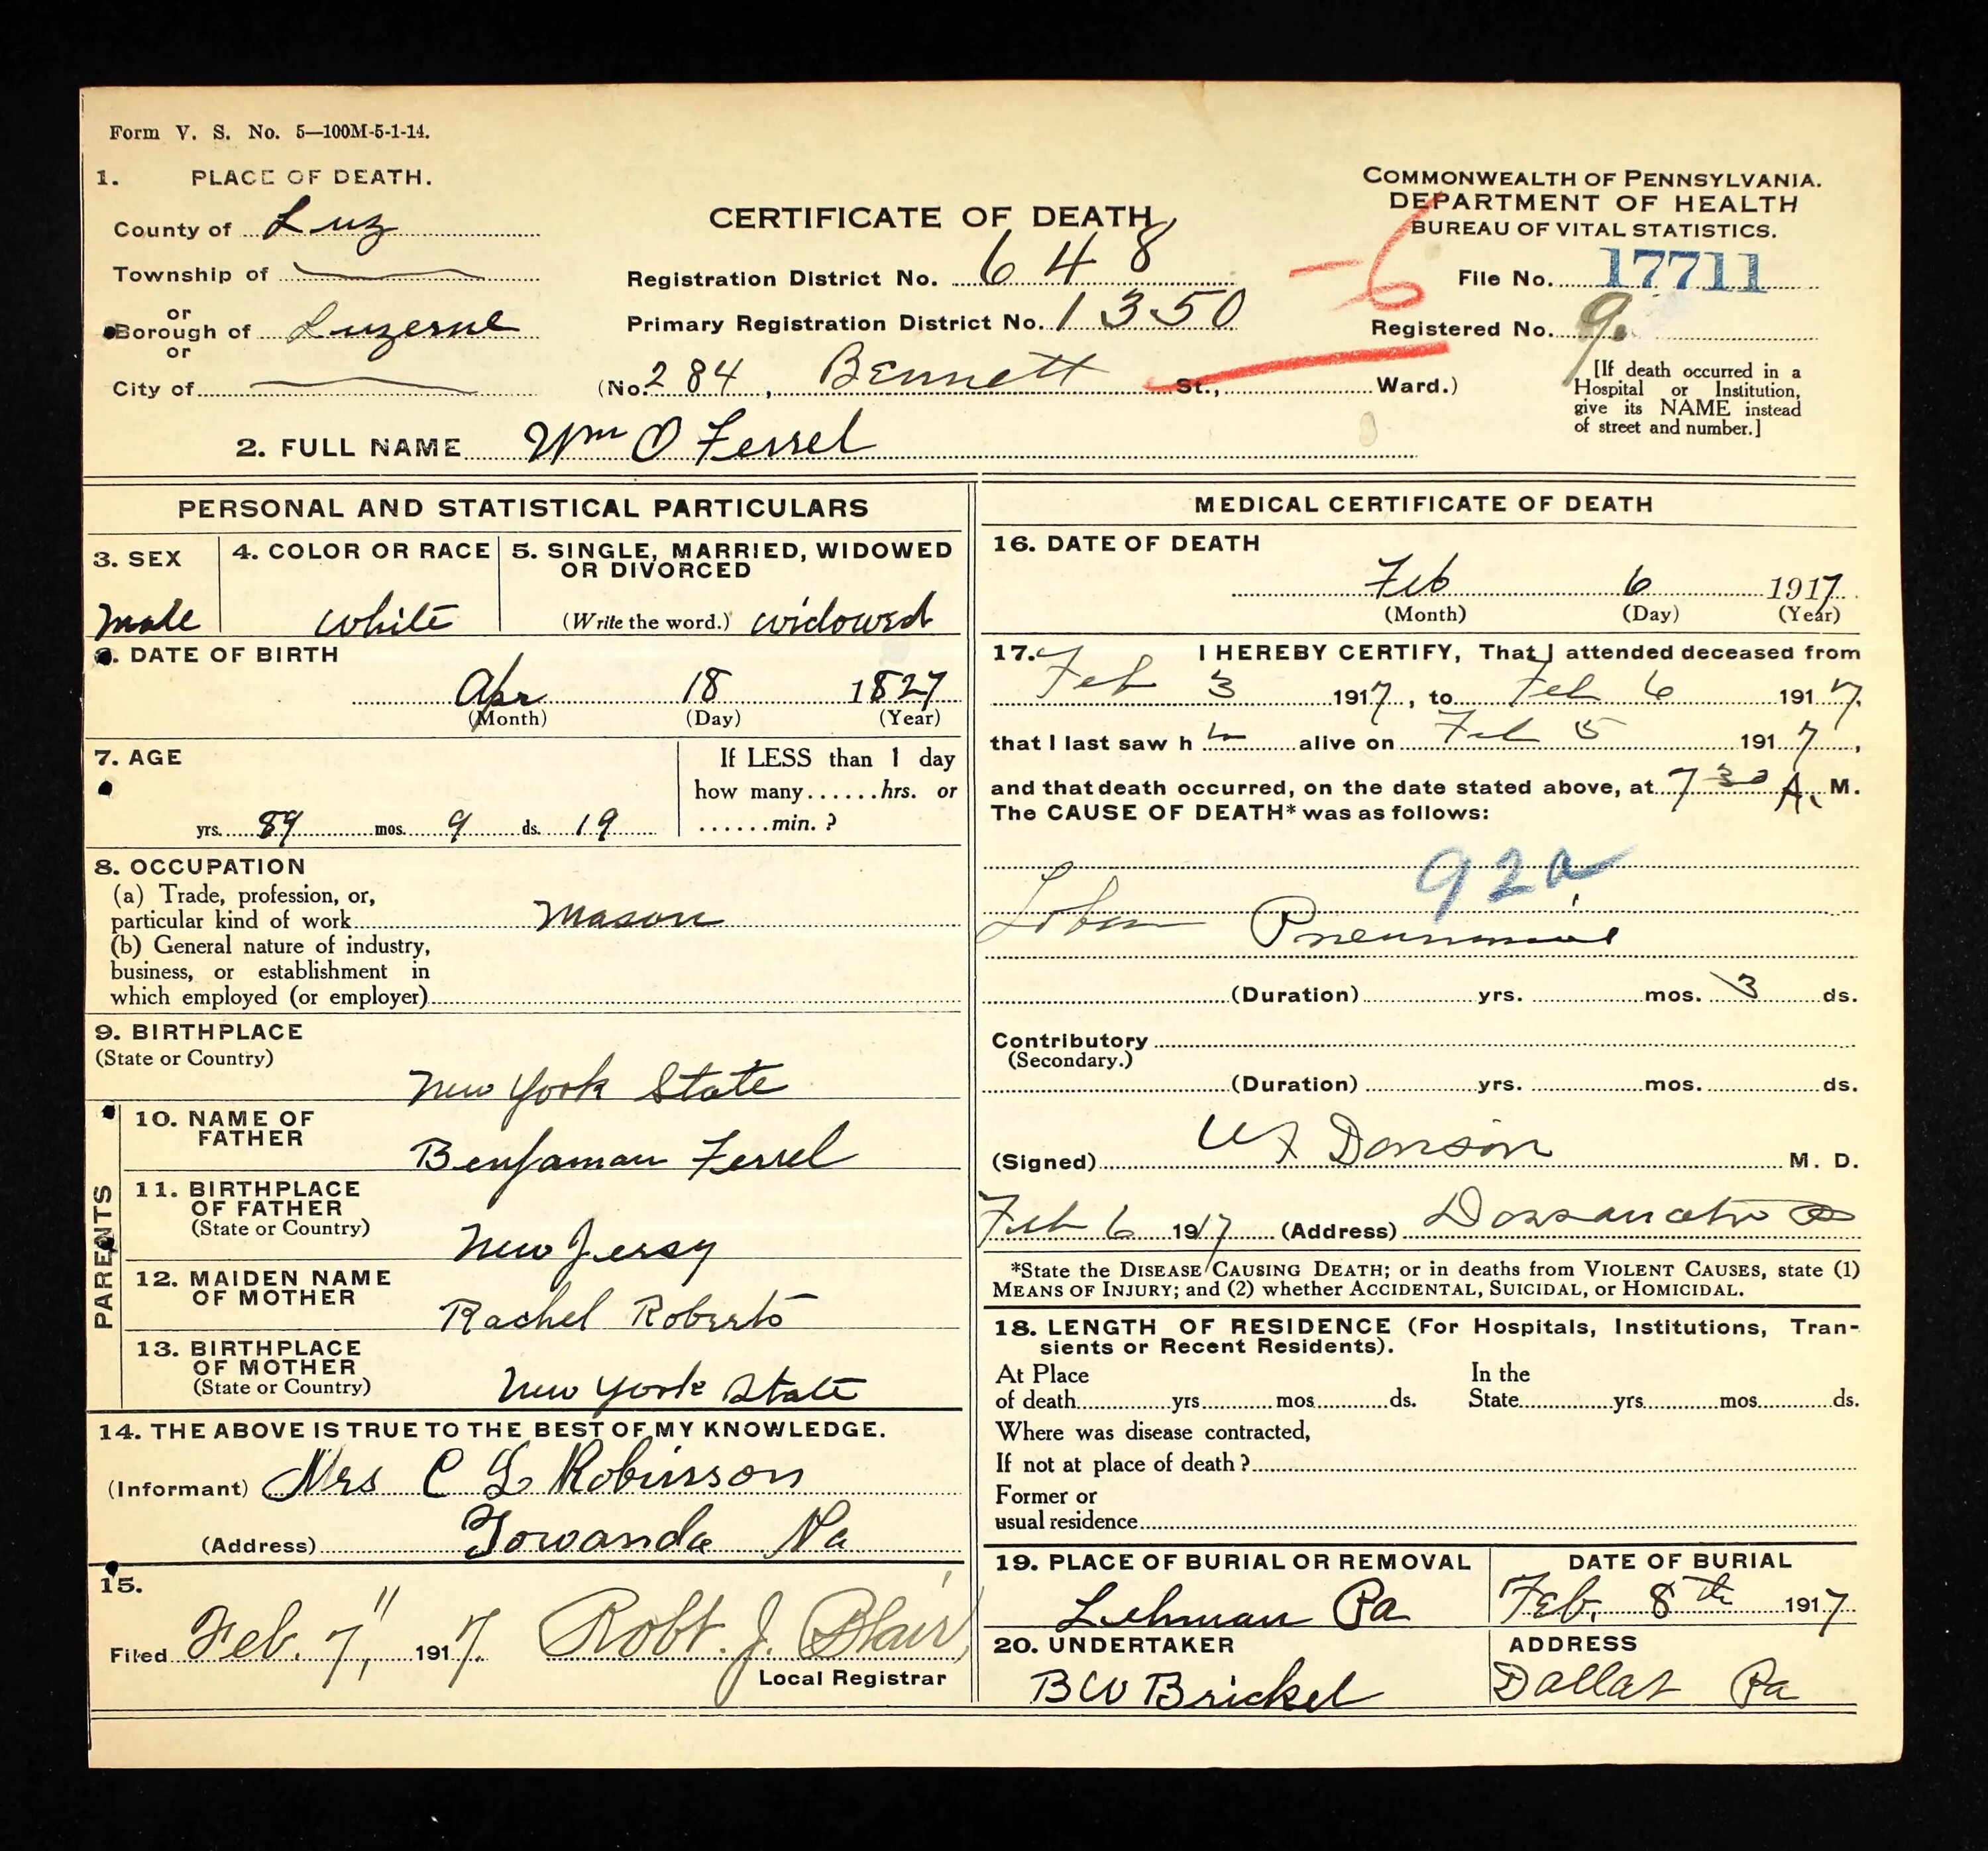 Form V. S. No. 5—100M-5-1-14.
1. PLACE OF DEATH.
County of Luz
Township of
or
Borough of Luzerne
or
City of
CERTIFICATE OF DEATH
Registration District No. 648
Primary Registration District No. 1350
(No. 284, Bennett St., Ward.)
COMMONWEALTH OF PENNSYLVANIA.
DEPARTMENT OF HEALTH
BUREAU OF VITAL STATISTICS.
-6
File No. 17711
Registered No. 9.
[If death occurred in a
Hospital or Institution,
give its NAME instead
of street and number.]
2. FULL NAME Wm O Ferrel
PERSONAL AND STATISTICAL PARTICULARS
3. SEX
Male
4. COLOR OR RACE
White
5. SINGLE, MARRIED, WIDOWED
OR DIVORCED
(Write the word.) widowed
6. DATE OF BIRTH
Apr 18 1827
(Month) (Day) (Year)
7. AGE
yrs. 89 mos. 9 ds. 19
If LESS than 1 day
how many......hrs. or
......min. ?
8. OCCUPATION
(a) Trade, profession, or,
particular kind of work Mason
(b) General nature of industry,
business, or establishment in
which employed (or employer)
9. BIRTHPLACE
(State or Country)
New York State
PARENTS
10. NAME OF
FATHER
Benjaman Ferrel
11. BIRTHPLACE
OF FATHER
(State or Country)
New Jersy
12. MAIDEN NAME
OF MOTHER
Rachel Roberts
13. BIRTHPLACE
OF MOTHER
(State or Country)
New York State
14. THE ABOVE IS TRUE TO THE BEST OF MY KNOWLEDGE.
(Informant) Mrs C L Robinson
(Address) Towanda Pa
15.
Filed Feb. 7," 1917. Robt. J. Blair
Local Registrar
MEDICAL CERTIFICATE OF DEATH
16. DATE OF DEATH
Feb 6 1917
(Month) (Day) (Year)
17. I HEREBY CERTIFY, That I attended deceased from
Feb 3 1917, to Feb 6 1917,
that I last saw h im alive on Feb 5 1917,
and that death occurred, on the date stated above, at 7 30 A. M.
The CAUSE OF DEATH* was as follows:
92a
Lobar Pneumonia
(Duration) yrs. mos. 3 ds.
Contributory
(Secondary.)
(Duration) yrs. mos. ds.
(Signed) M. D.
Feb 6 1917 (Address)
*State the DISEASE CAUSING DEATH; or in deaths from VIOLENT CAUSES, state (1)
MEANS OF INJURY; and (2) whether ACCIDENTAL, SUICIDAL, or HOMICIDAL.
18. LENGTH OF RESIDENCE (For Hospitals, Institutions, Tran-
sients or Recent Residents).
At Place
of death yrs mos ds.
In the
State yrs mos ds.
Where was disease contracted,
If not at place of death ?
Former or
usual residence
19. PLACE OF BURIAL OR REMOVAL
Lehman Pa
DATE OF BURIAL
Feb, 8th 1917
20. UNDERTAKER
B W Brickel
ADDRESS
Dallas Pa